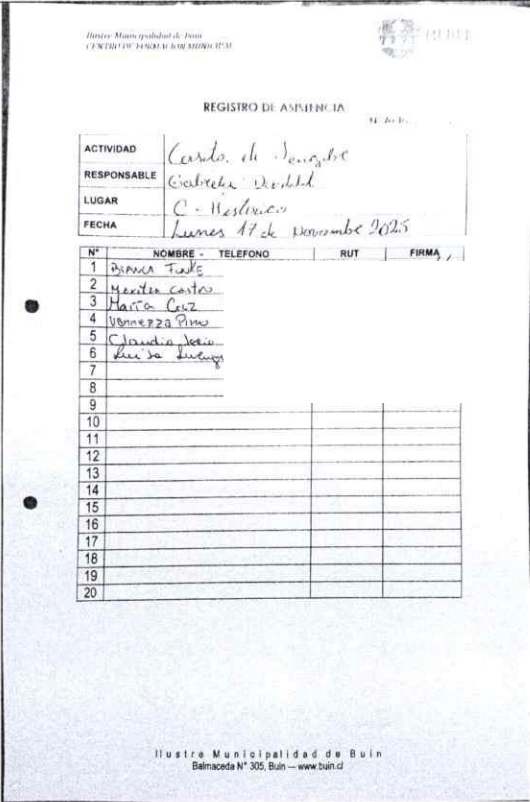 Ilustre Municipalidad de Buin
CENTRO DE FORMACION MUNICIPAL
BUIN
REGISTRO DE ASISTENCIA
ACTIVIDAD
RESPONSABLE Gabriela
LUGAR C - Historico
FECHA Lunes 17 de Noviembre 2025
N° NOMBRE - TELEFONO RUT FIRMA
1 BIANCA
2 Castro
3 Maria Cruz
4 Vannezza Pino
5 Claudia
6 Luisa
7
8
9
10
11
12
13
14
15
16
17
18
19
20
Ilustre Municipalidad de Buin
Balmaceda N° 305, Buin — www.buin.cl